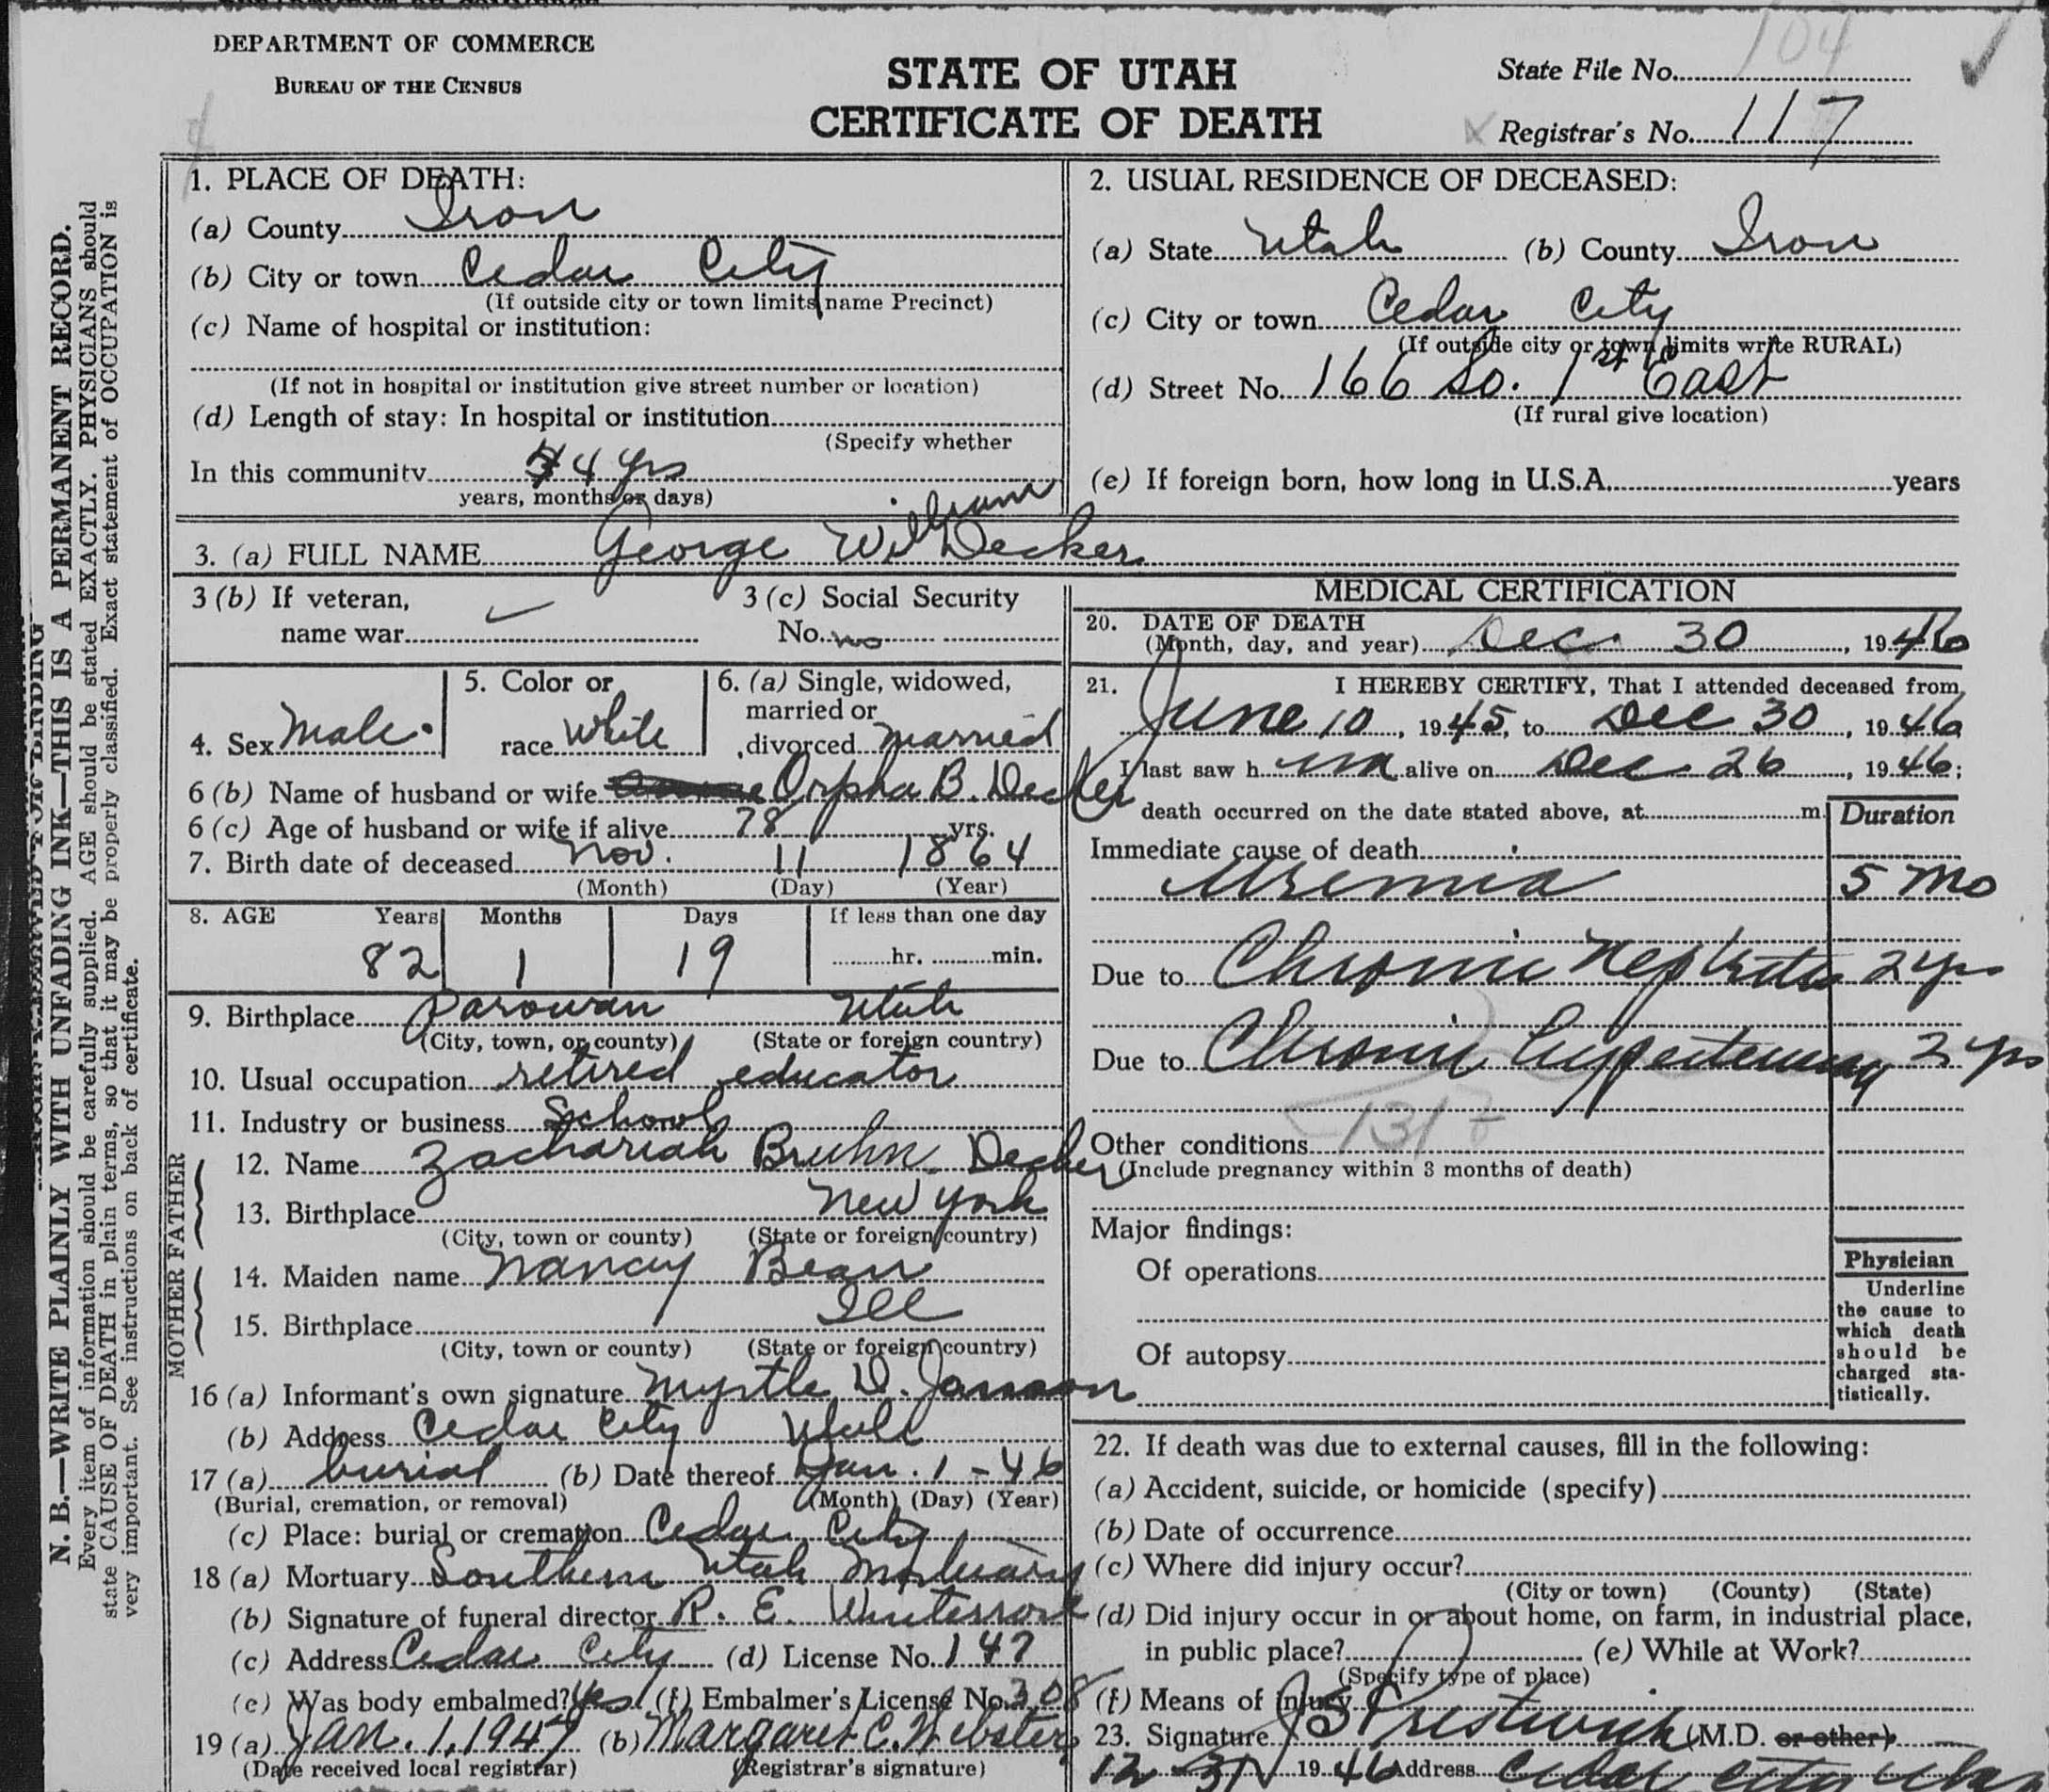 DEPARTMENT OF COMMERCE
BUREAU OF THE CENSUS
STATE OF UTAH
CERTIFICATE OF DEATH
State File No. 104
Registrar's No. 117
N. B.—WRITE PLAINLY WITH UNFADING INK—THIS IS A PERMANENT RECORD.
Every item of information should be carefully supplied. AGE should be stated EXACTLY. PHYSICIANS should
state CAUSE OF DEATH in plain terms, so that it may be properly classified. Exact statement of OCCUPATION is
very important. See instructions on back of certificate.
1. PLACE OF DEATH:
(a) County Iron
(b) City or town Cedar City
(If outside city or town limits name Precinct)
(c) Name of hospital or institution:
(If not in hospital or institution give street number or location)
(d) Length of stay: In hospital or institution
(Specify whether
In this community 4 yrs
years, months or days)
2. USUAL RESIDENCE OF DECEASED:
(a) State Utah (b) County Iron
(c) City or town Cedar City
(If outside city or town limits write RURAL)
(d) Street No. 166 So. 1st East
(If rural give location)
(e) If foreign born, how long in U.S.A. years
3. (a) FULL NAME George William Decker
3 (b) If veteran,
name war
3 (c) Social Security
No. no
4. Sex Male
5. Color or
race White
6. (a) Single, widowed,
married or
divorced married
6 (b) Name of husband or wife Orpha B. Decker
6 (c) Age of husband or wife if alive 78 yrs.
7. Birth date of deceased Nov. 11 1864
(Month) (Day) (Year)
8. AGE Years Months Days If less than one day
82 1 19 hr. min.
9. Birthplace Parowan Utah
(City, town, or county) (State or foreign country)
10. Usual occupation retired educator
11. Industry or business Schools
FATHER
12. Name Zachariah Bruhn Decker
13. Birthplace New York
(City, town or county) (State or foreign country)
MOTHER
14. Maiden name Nancy Bean
15. Birthplace Ill
(City, town or county) (State or foreign country)
16 (a) Informant's own signature Myrtle D.
(b) Address Cedar City Utah
17 (a) burial (b) Date thereof Jan. 1 - 46
(Burial, cremation, or removal) (Month) (Day) (Year)
(c) Place: burial or cremation Cedar City
18 (a) Mortuary Southern Utah Mortuary
(b) Signature of funeral director R. E.
(c) Address Cedar City (d) License No. 147
(e) Was body embalmed? Yes (f) Embalmer's License No. 308
19 (a) Jan. 1, 1947 (b) Margaret C. Webster
(Date received local registrar) (Registrar's signature)
MEDICAL CERTIFICATION
20. DATE OF DEATH
(Month, day, and year) Dec. 30, 1946
21. I HEREBY CERTIFY, That I attended deceased from
June 10, 1945, to Dec 30, 1946
I last saw h im alive on Dec 26, 1946;
death occurred on the date stated above, at m.
Duration
Immediate cause of death
Uremia 5 mo
Due to Chronic Nephritis 2 yrs
Due to Chronic yrs
131
Other conditions
(Include pregnancy within 3 months of death)
Major findings:
Of operations
Of autopsy
Physician
Underline
the cause to
which death
should be
charged sta-
tistically.
22. If death was due to external causes, fill in the following:
(a) Accident, suicide, or homicide (specify)
(b) Date of occurrence
(c) Where did injury occur?
(City or town) (County) (State)
(d) Did injury occur in or about home, on farm, in industrial place,
in public place? (e) While at Work?
(Specify type of place)
(f) Means of injury
23. Signature Prestwich (M.D. or other)
12-31 1946 Address Cedar City Utah